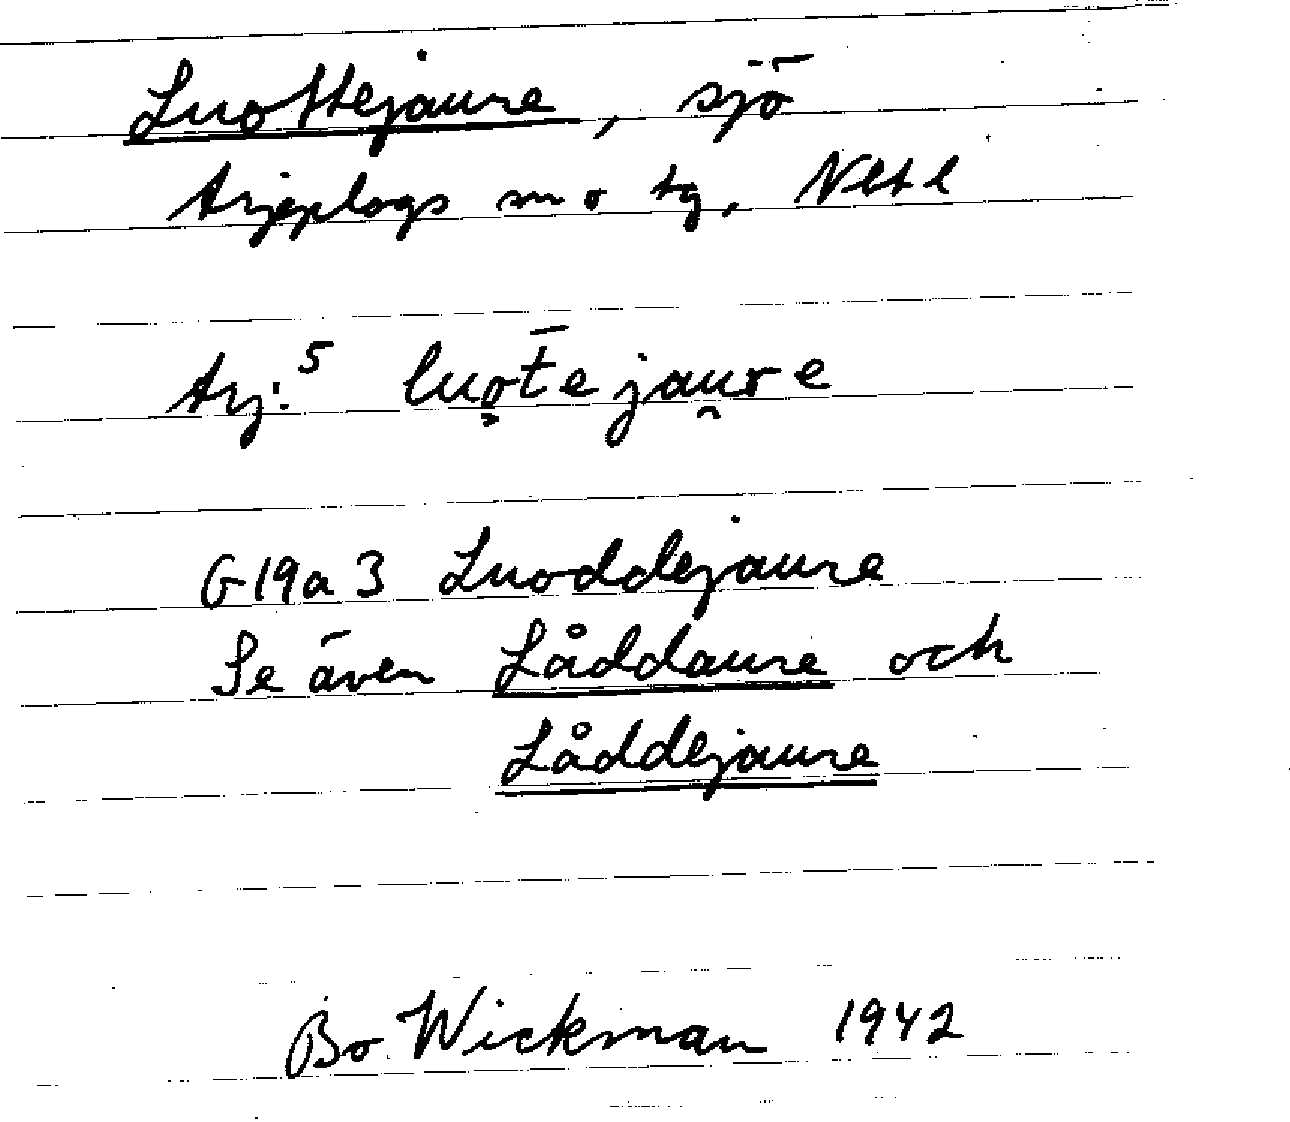 Luottejaure, sjö
Arjeplogs sn o tg, Nbtl
Arj:⁵ luo̜t̄ejau̯re
G19a3 Luoddejaure
Se även Låddaure och
Låddejaure
Bo Wickman 1942